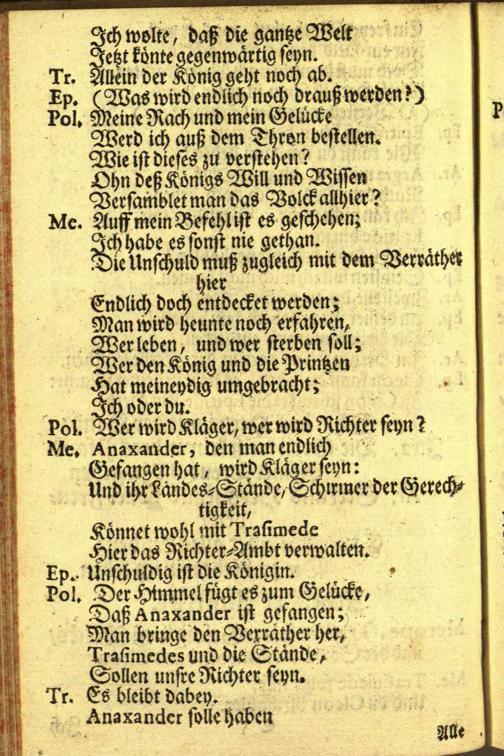 Ich wolte, daß die gantze Welt
Jetzt könte gegenwärtig seyn.
Tr. Allein der König geht noch ab.
Ep. (Was wird endlich noch drauß werden?)
Pol. Meine Rach und mein Gelücke
Werd ich auß dem Thron bestellen.
Wie ist dieses zu verstehen?
Ohn deß Königs Will und Wissen
Versamblet man das Volck allhier?
Me. Auff mein Befehl ist es geschehen;
Ich habe es sonst nie gethan.
Die Unschuld muß zugleich mit dem Verräther
hier
Endlich doch entdecket werden;
Man wird heunte noch erfahren,
Wer leben, und wer sterben soll;
Wer den König und die Printzen
Hat meineydig umgebracht;
Ich oder du.
Pol. Wer wird Kläger, wer wird Richter seyn?
Me. Anaxander, den man endlich
Gefangen hat, wird Kläger seyn:
Und ihr Landes-Stände, Schirmer der Gerech-
tigkeit,
Könnet wohl mit Trasimede
Hier das Richter-Ambt verwalten.
Ep. Unschuldig ist die Königin.
Pol. Der Himmel fügt es zum Gelücke,
Daß Anaxander ist gefangen;
Man bringe den Verräther her,
Trasimedes und die Stände,
Sollen unsre Richter seyn.
Tr. Es bleibt dabey.
Anaxander solle haben
Alle